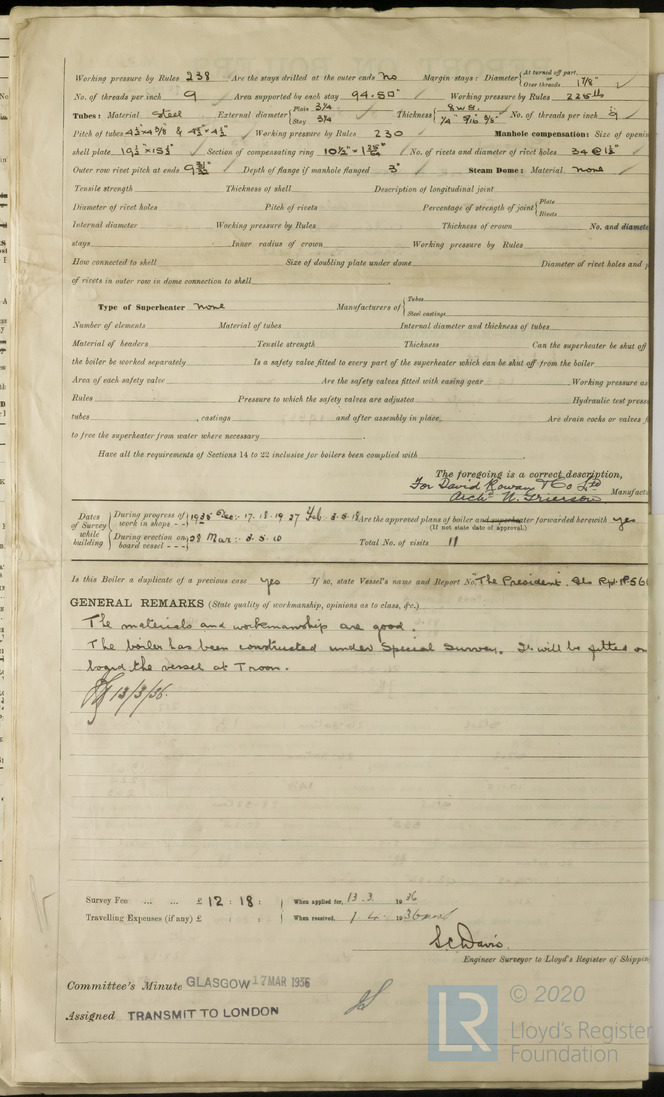 Working pressure by Rules 238 Are the stays drilled at the outer ends No Margin stays: Diameter { At turned off part, or Over threads 1 7/8"
No. of threads per inch 9 Area supported by each stay 94.50" Working pressure by Rules 225 lb
Tubes: Material Steel External diameter { Plain 3 1/4 Stay 3 1/4 Thickness { 8 W.G. 1/4" 5/16 3/8" No. of threads per inch 9
Pitch of tubes Working pressure by Rules 230 Manhole compensation: Size of openin
shell plate 19 1/2" × 15 1/2" Section of compensating ring No. of rivets and diameter of rivet holes 34 @ 1 1/2"
Outer row rivet pitch at ends Depth of flange if manhole flanged 3" Steam Dome: Material None
Tensile strength Thickness of shell Description of longitudinal joint
Diameter of rivet holes Pitch of rivets Percentage of strength of joint { Plate Rivets
Internal diameter Working pressure by Rules Thickness of crown No. and diamete
stays Inner radius of crown Working pressure by Rules
How connected to shell Size of doubling plate under dome Diameter of rivet holes and p
of rivets in outer row in dome connection to shell
Type of Superheater None Manufacturers of { Tubes Steel castings
Number of elements Material of tubes Internal diameter and thickness of tubes
Material of headers Tensile strength Thickness Can the superheater be shut off
the boiler be worked separately Is a safety valve fitted to every part of the superheater which can be shut off from the boiler
Area of each safety valve Are the safety valves fitted with easing gear Working pressure as
Rules Pressure to which the safety valves are adjusted Hydraulic test press
tubes , castings and after assembly in place, Are drain cocks or valves f
to free the superheater from water where necessary
Have all the requirements of Sections 14 to 22 inclusive for boilers been complied with
The foregoing is a correct description,
For David Rowan & Co Ltd
Archd. N. Grierson Manufact
Dates of Survey while building { During progress of work in shops - - } 1935 Dec: 17. 18. 19 27 Feb. 3. 5. 18 Are the approved plans of boiler and superheater forwarded herewith yes
(If not state date of approval.)
{ During erection on board vessel - - - } 28 Mar: 3. 5. 10 Total No. of visits 11
Is this Boiler a duplicate of a previous case yes If so, state Vessel's name and Report No. "The President. Gls Rpt. No 566
GENERAL REMARKS (State quality of workmanship, opinions as to class, &c.)
The materials and workmanship are good.
The boiler has been constructed under Special Survey. It will be fitted on
board the vessel at Troon.
13/3/36.
Survey Fee ... ... £ 12 : 18 : When applied for, 13. 3. 1936
Travelling Expenses (if any) £ : : When received, 1 4. 1936
S. C. Davis.
Engineer Surveyor to Lloyd's Register of Shippin
Committee's Minute GLASGOW 17 MAR 1936
Assigned TRANSMIT TO LONDON
LR © 2020
Lloyd's Register
Foundation